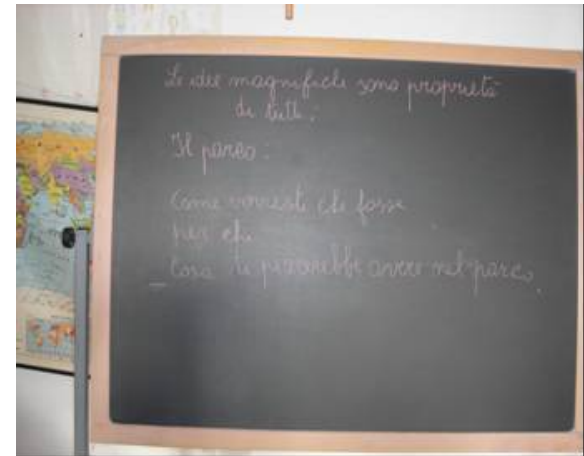 Le idee magnifiche sono proprietà
di tutti:
Il parco:
Come vorresti che fosse
per chi
_ Cosa ti piacerebbe avere nel parco.